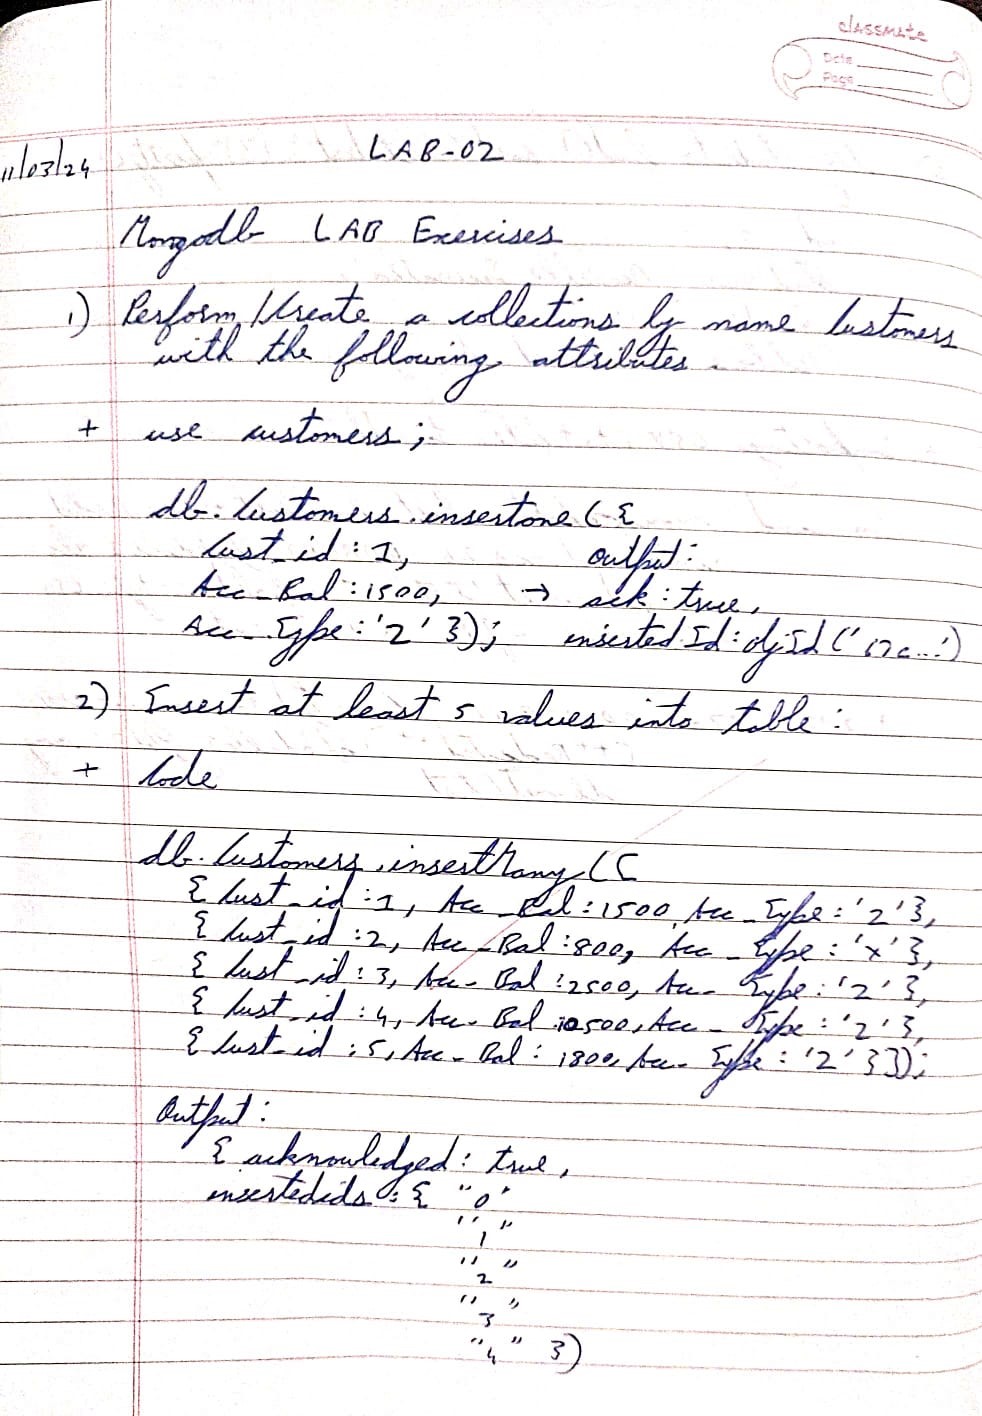 classmate
Date
Page
11/03/24
LAB-02
Mongodb LAB Exercises
1) Perform/Create a collections by name Customers
with the following attributes.
+ use customers;
db.Customers.insertone({
Cust_id : 1,
output:
Acc_Bal : 1500,
→ ack : true,
Acc_Type : 'Z' });
inserted Id : obj Id ('
2) Insert at least 5 values into table :
+ Code
db.Customers.insertMany([
{ Cust_id : 1, Acc_Bal : 1500, Acc_Type : 'Z' },
{ Cust_id : 2, Acc_Bal : 800, Acc_Type : 'X' },
{ Cust_id : 3, Acc_Bal : 2500, Acc_Type : 'Z' },
{ Cust_id : 4, Acc_Bal : 10500, Acc_Type : 'Z' },
{ Cust_id : 5, Acc_Bal : 1800, Acc_Type : 'Z' }]);
Output :
{ acknowledged : true,
insertedids : { "0"
"1"
"2"
"3"
"4" })